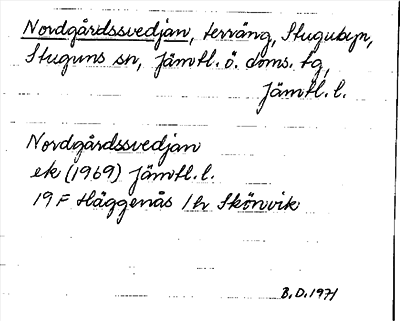 Nordgårdssvedjan, terräng, Stugubyn,
Stuguns sn, Jämtl. ö. doms. tg,
Jämtl. l.
Nordgårdssvedjan
ek (1969) Jämtl. l.
19 F Häggenås 1 h Skönvik
B.D. 1971